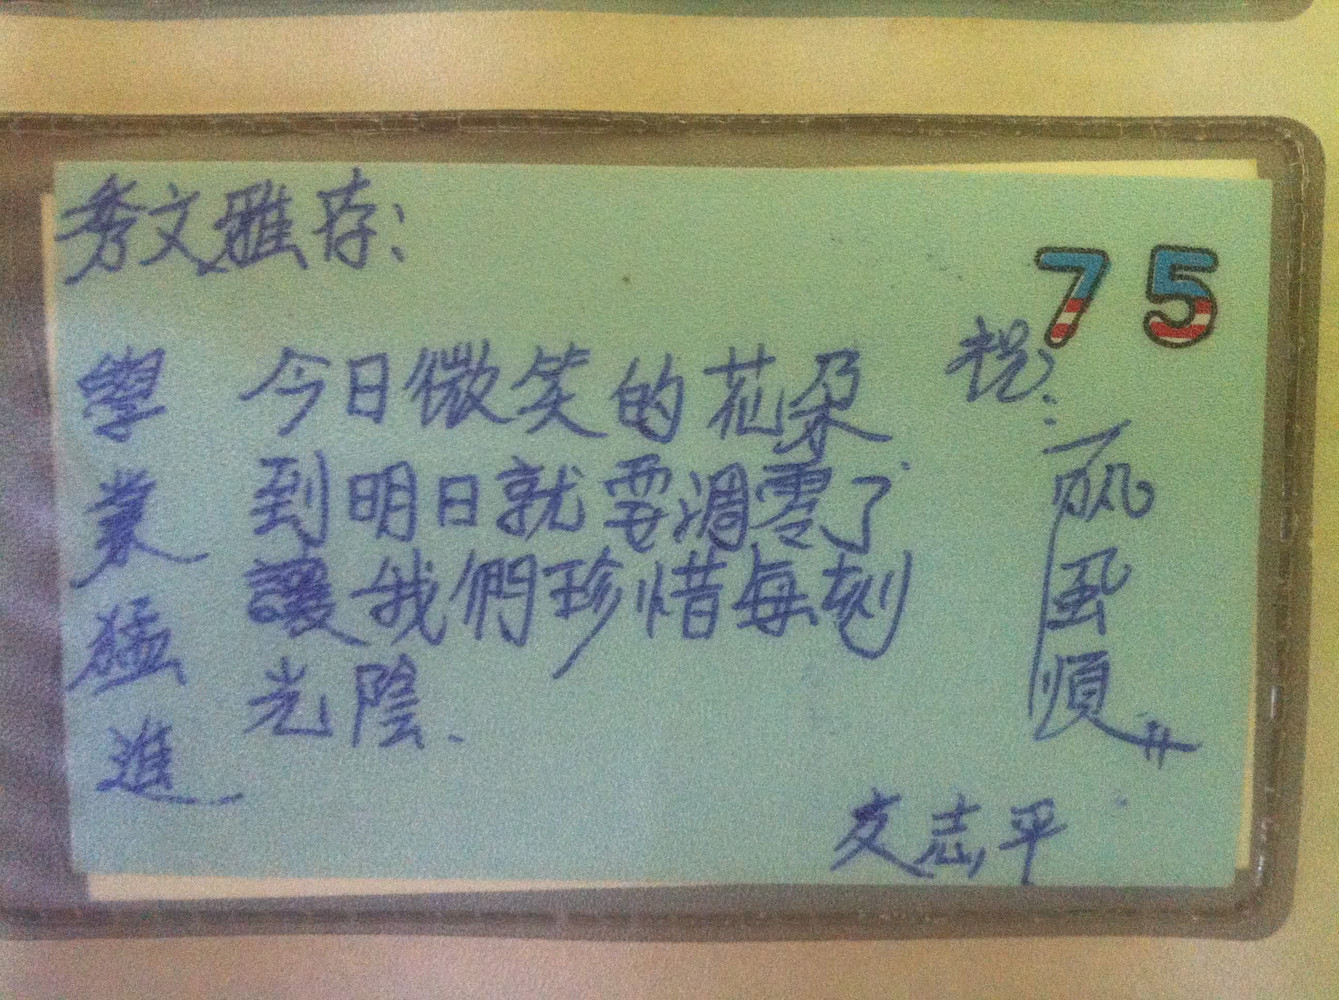 秀文雅存：
75
學業猛進
今日微笑的花朵
到明日就要凋零了
讓我們珍惜每刻
光陰.
祝：
一帆風順
友志平